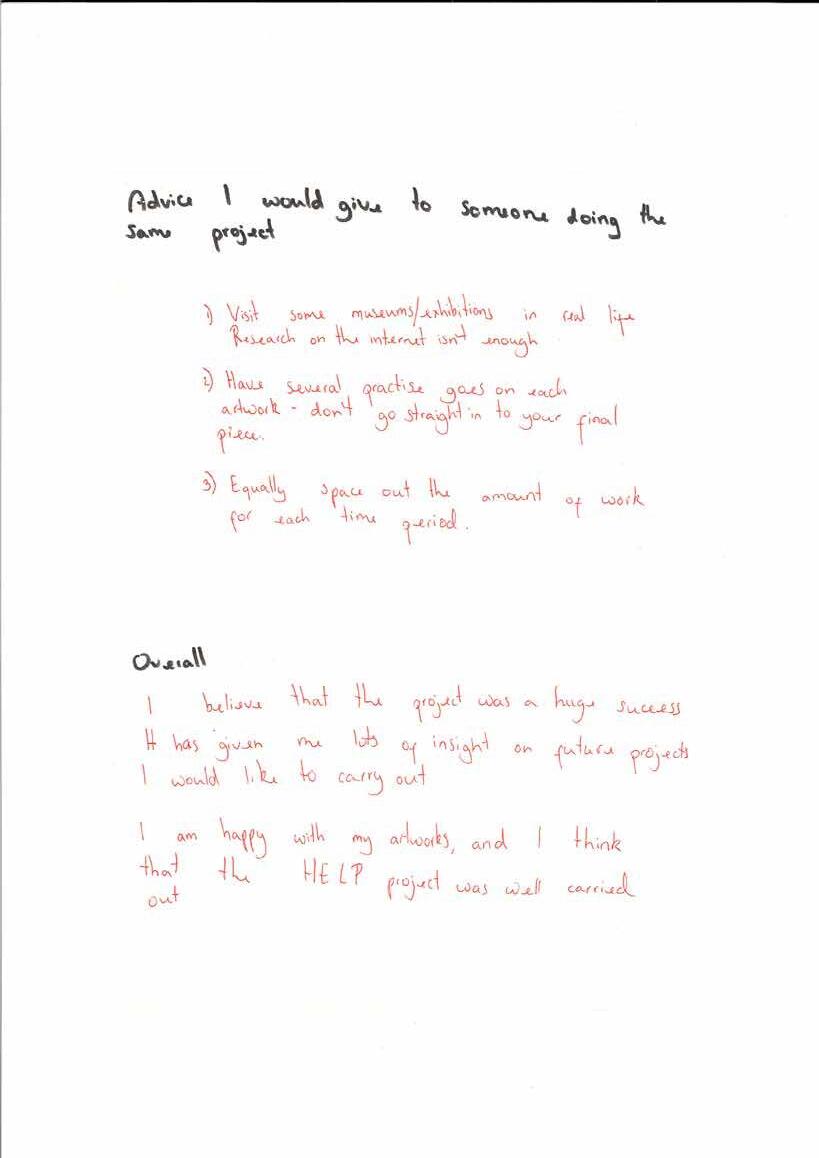 Advice I would give to someone doing the
same project
1) Visit some museums/exhibitions in real life
Research on the internet isn't enough
2) Have several practise goes on each
artwork - don't go straight in to your final
piece.
3) Equally space out the amount of work
for each time period.
Overall
I believe that the project was a huge success
It has given me lots of insight on future projects
I would like to carry out
I am happy with my artworks, and I think
that the HELP project was well carried
out